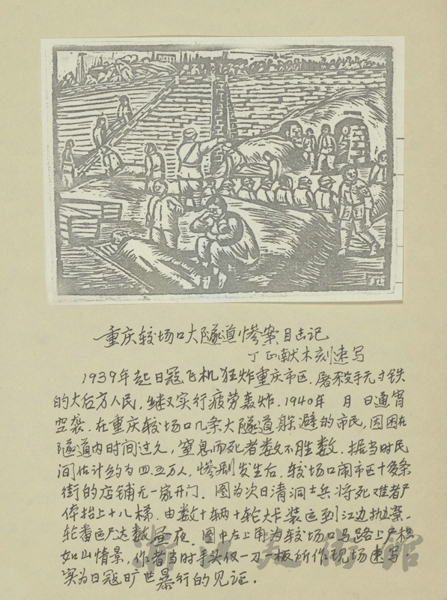 重庆较场口大隧道惨案目击记
丁正献木刻速写
1939年起日寇飞机狂炸重庆市区.屠杀手无寸铁
的大后方人民,继又实行疲劳轰炸.1940年 月 日通宵
空袭.在重庆较场口几条大隧道躲避的市民,因困在
隧道内时间过久,窒息而死者数不胜数.据当时民
间估计约为四五万人.惨剧发生后.较场口闹市区十条
街的店铺无一家开门.图为次日清洞士兵将死难者尸
体抬上十八梯.由数十辆十轮大炸装运到江边抛葬.
轮番运尸达数昼夜.图中左上角为较场口马路上尸积
如山情景,作者当时手头仅一刀一板所作现场速写
实为日寇旷世暴行的见证.